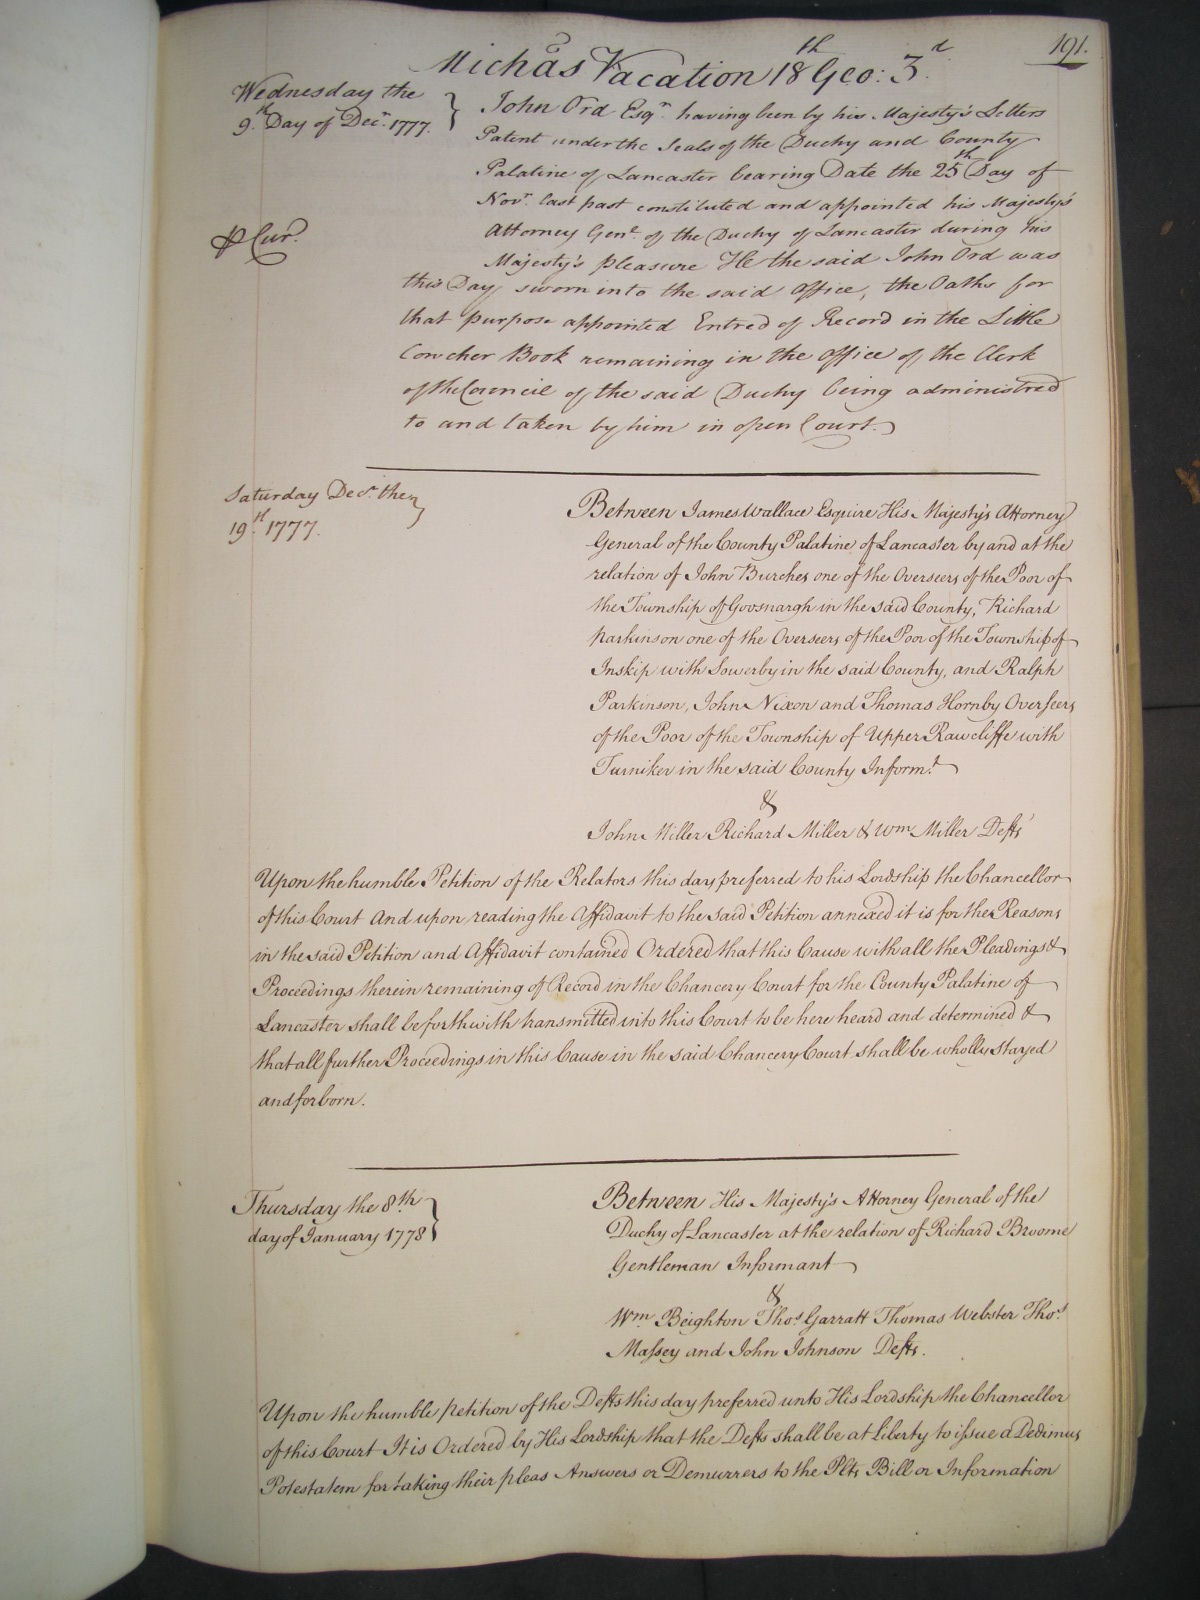 191.
Michas Vacation 18th Geo: 3d.
Wednesday the
9th. Day of Decr. 1777.
John Ord Esqr. having been by his Majesty's Letters
Patent under the Seals of the Duchy and County
Palatine of Lancaster bearing Date the 25th Day of
Novr. last past constituted and appointed his Majesty's
P Cur.
Attorney Genl. of the Duchy of Lancaster during his
Majesty's pleasure He the said John Ord was
this Day sworn into the said Office, the Oaths for
that purpose appointed Entred of Record in the Little
Concher Book remaining in the Office of the Clerk
of the Council of the said Duchy being administred
to and taken by him in open Court.
Saturday Decr. the
19th. 1777.
Between James Wallace Esquire His Majesty's Attorney
General of the County Palatine of Lancaster by and at the
relation of John Burches one of the Overseers of the Poor of
the Township of Goosnargh in the said County, Richard
Parkinson one of the Overseers of the Poor of the Township of
Inskip with Sowerby in the said County, and Ralph
Parkinson, John Nixon and Thomas Hornby Overseers
of the Poor of the Township of Upper Rawcliffe with
Turniker in the said County Informt.
&
John Miller Richard Miller & Wm Miller Defts
Upon the humble Petition of the Relators this day preferred to his Lordship the Chancellor
of this Court And upon reading the Affidavit to the said Petition annexed it is for the Reasons
in the said Petition and Affidavit contained Ordered that this Cause with all the Pleadings &
Proceedings therein remaining of Record in the Chancery Court for the County Palatine of
Lancaster shall be forthwith transmitted into this Court to be here heard and determined &
that all further Proceedings in this Cause in the said Chancery Court shall be wholly stayed
and forborn.
Thursday the 8th.
day of January 1778
Between His Majesty's Attorney General of the
Duchy of Lancaster at the relation of Richard Broome
Gentleman Informant
&
Wm. Beighton Thos. Garratt Thomas Webster Thos.
Massey and John Johnson Defts.
Upon the humble petition of the Defts this day preferred unto His Lordship the Chancellor
of this Court It is Ordered by His Lordship that the Defts shall be at Liberty to issue a Dedimus
Potestatem for taking their pleas Answers or Demurrers to the Plts Bill or Information